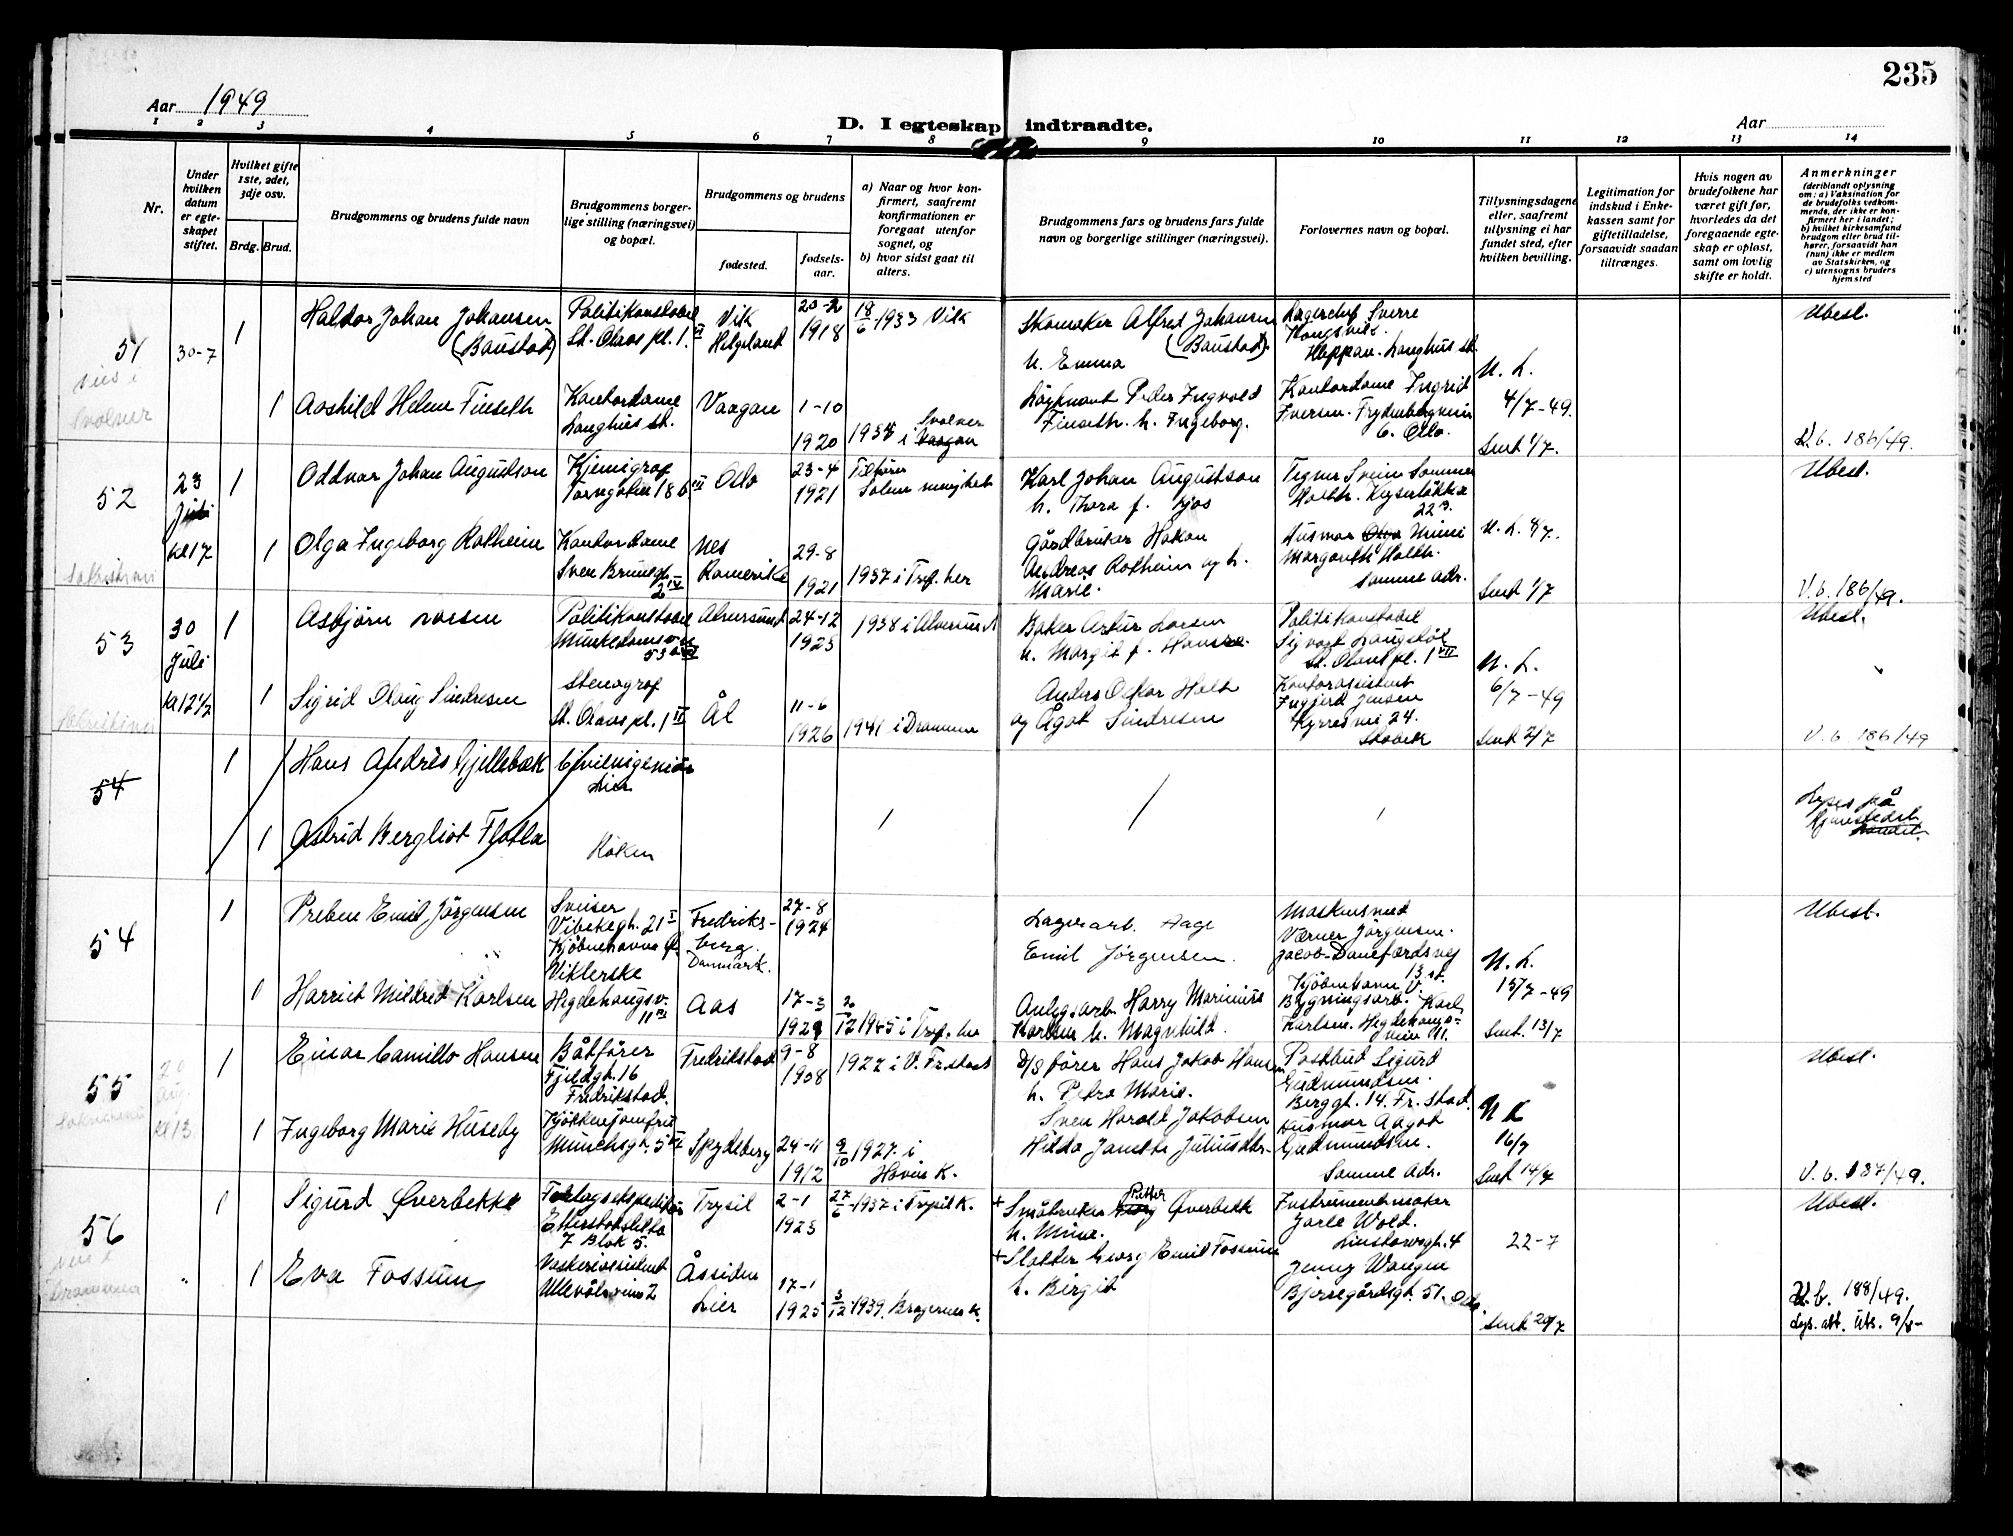 235
Aar 1949
D. I egteskap indtraadte.
Aar
1 2 3 4 5 6 7 8 9 10 11 12 13 14
Nr.
Under hvilken datum er egteskapet stiftet.
Hvilket gifte 1ste, 2det, 3dje osv.
Brdg. Brud.
Brudgommens og brudens fulde navn
Brudgommens borgerlige stilling (næringsvei) og bopæl.
Brudgommens og brudens
fødested.
fødselsaar.
a) Naar og hvor konfirmert, saafremt konfirmationen er foregaat utenfor sognet, og
b) hvor sidst gaat til alters.
Brudgommens fars og brudens fars fulde navn og borgerlige stillinger (næringsvei).
Forlovernes navn og bopæl.
Tillysningsdagene eller, saafremt tillysning ei har fundet sted, efter hvilken bevilling.
Legitimation for indskud i Enkekassen samt for giftetilladelse, forsaavidt saadan tiltrænges.
Hvis nogen av brudefolkene har været gift før, hvorledes da det foregaaende egteskap er opløst, samt om lovlig skifte er holdt.
Anmerkninger
(deriblandt oplysning om: a) Vaksination for de brudefolks vedkommende, der ikke er konfirmert her i landet; b) hvilket kirkesamfund brudgom eller brud tilhører, forsaavidt han (hun) ikke er medlem av Statskirken, og c) utensogns bruders hjemsted
51
30-7
1
Haldor Johan Johansen
(Baustad)
Politikonstabel
St. Olavs pl. 1 VI
Vik
Helgeland
20-2
1918
18/6 1933 Vik
Skomaker Alfred Johansen
(Baustad).
h. Emma
Lagerchef Sverre
Kongsvik.
Heppan. Langhus st.
Ubest.
Svolvær
1
Aashild Helene Finseth
Kontordame
Langhus st.
Vaagan
1-10
1920
1934 i Svolvær
Vaagan
Peder Ingvold
Finseth. h. Ingeborg.
Kontordame Ingrid
Iversen. Frydenbergveien
6. Oslo.
N. L.
4/7-49.
Sendt 1/7.
V.b. 186/49.
52
23
Juli
kl 17
1
Oddvar Johan Augustson
Kjemigraf
Torggaten 18 b VI
Oslo
23-4
1921
Tilhører
Salem menighet
Karl Johan Augustson
h. Thora f. Gjøs
Tegner Svein Sommer
Holth. Keyserløkka
22 B.
Ubest.
1
Olga Ingeborg Rotheim
Kontordame
Sven Brunsgt.
2 IV
Nes
Romerike
29-8
1921
1937 i Tref. her
Gårdbruker Hakon
Andreas Rotheim og h.
Marie.
Husmor Olga Mimi
Margareth Holth.
Samme adr.
N. L. 8/7.
Sendt 1/7
V.b. 186/49.
53
30
Juli
kl 12 1/2
1
Asbjørn Larsen
Politikonstabel
Munkedamsvn.
53 a VI
Alversund
24-12
1923
1938 i Alversund
Baker Artur Larsen
h. Margit f. Hansen
Politikonstabel
Sigvart Langstøl
St. Olavs pl. 1 VII
Ubest.
1
Sigrid Olaug Sindresen
Stenograf
St. Olavs pl. 1 VI
Ål
11-6
1926
1941 i Drammen
Anders Oskar Holt
og Ågot Sindresen
Kontorassistent
Ingjerd Jensen
Kyrresvei 24.
Stabekk
N. L.
6/7-49
Sendt 2/7
V.b. 186/49
54
1
Hans Andrés Gjellebæk
Civilingeniør
Lier
1
Astrid Bergliot Flotla
Røken
Lyses på
hjemstedet
54
1
Preben Emil Jørgensen
Sveiser
Vibekegt. 21 I
Kjøbenhavn Ø.
Fredriksberg.
Danmark.
27-8
1924
Lagerarb. Aage
Emil Jørgensen.
Maskinsmed
Værner Jørgensen.
Jacob Danefærdsvej
13 st.
Kjøbenhavn V.
Ubest.
1
Harriet Mildred Karlsen
Viklerske
Hegdehaugsv.
11 III
Aas
17-3
1929
2/12 1945 i Tref. her
Anlegsarb. Harry Marinius
Karlsen h. Magnhild.
Bygningsarb. Karl
Karlsen. Hegdehaugsveien 11.
N. L.
15/7-49
Sendt 13/7
55
20
aug.
kl 13
1
Einar Camillo Hansen
Båtfører
Fjeldgt. 16
Fredrikstad.
Fredrikstad
9-8
1908
1927 i V. Fr.stad
D/S fører Hans Jakob Hansen
h. Petra Marie.
Postbud Sigurd
Gudmundsen.
Berggt. 14. Fr.stad.
Ubest.
1
Ingeborg Marie Huseby
Kjøkkenjomfru
Munchsgt. 5 VI
Spydeberg
24-11
1912
9/10 1927 i
Hovin K.
Sven Harald Jakobsen
Hilda Janette Juliusdtr.
Husmor Aagot
Gudmundsen.
Samme adr.
N L
16/7
Sendt 14/7
V.b. 187/49.
56
1
Sigurd Øverbekk
Forlagsekspeditør
Etterstadsletta
7 Blok 5.
Trysil
2-1
1923
27/6-1937 i Trysil K.
+ Småbruker Petter Øverbekk
h. Mina.
Instrumentmaker
Jarle Wold.
Linstowsgt. 4
22-7
Ubest.
"
1
Eva Fossum
Vaskeriassistent
Ullevålsveien 2
Åssiden
Lier
17-1
1925
3/12 1939. Bragernes K.
+ Slakter Georg Emil Fossum
h. Birgit
Jenny Wangen
Bjerregårdsgt. 51. Oslo.
Sendt 20/7
V.b. 188/49.
Lys. att. Uts. 9/8-